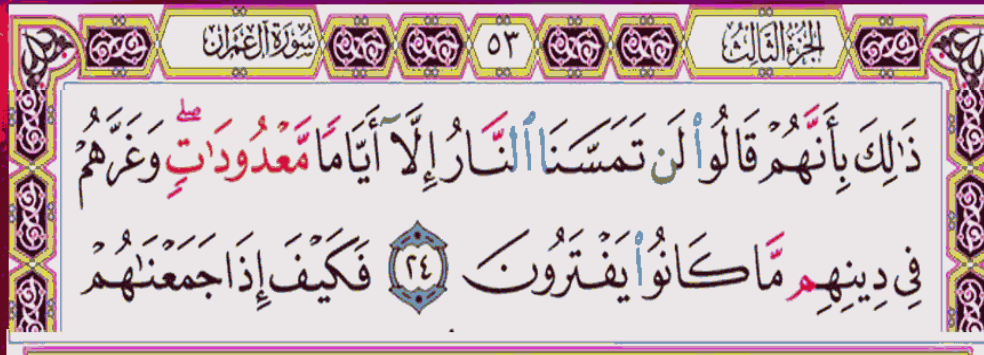 الجزء الثالث ٥٣ سورة آل عمران
ذَٰلِكَ بِأَنَّهُمْ قَالُوا۟ لَن تَمَسَّنَا ٱلنَّارُ إِلَّآ أَيَّامًا مَّعْدُودَٰتٍۖ وَغَرَّهُمْ
فِى دِينِهِم مَّا كَانُوا۟ يَفْتَرُونَ ٢٤ فَكَيْفَ إِذَا جَمَعْنَٰهُمْ